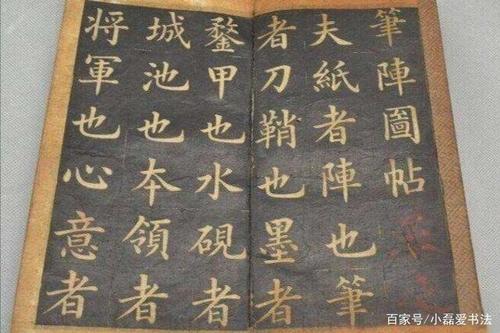 筆陣圖帖
夫紙者陣也筆
者刀鞘也墨者
鍪甲也水硯者
城池也本領者
将軍也心意者
百家号/小磊爱书法